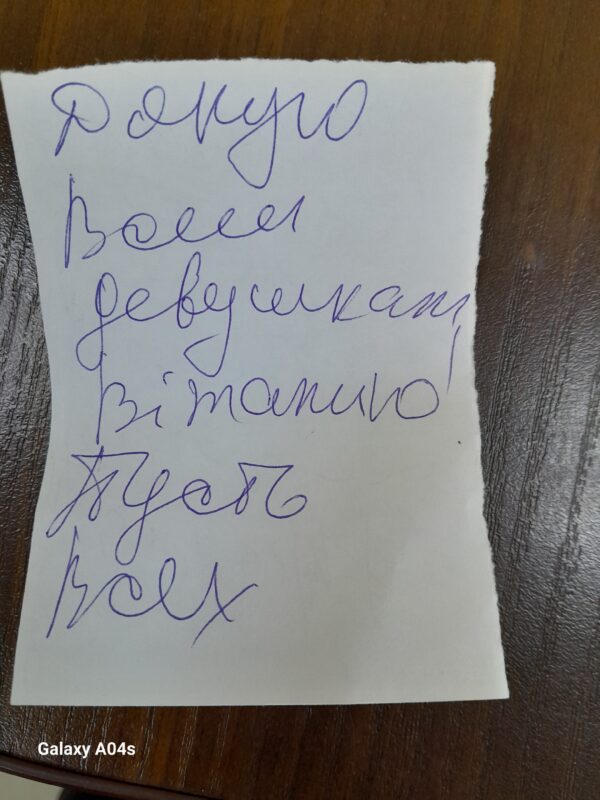 Дякую
Всем
девушкам,
Віталию!
Пусть
Всех
Galaxy A04s